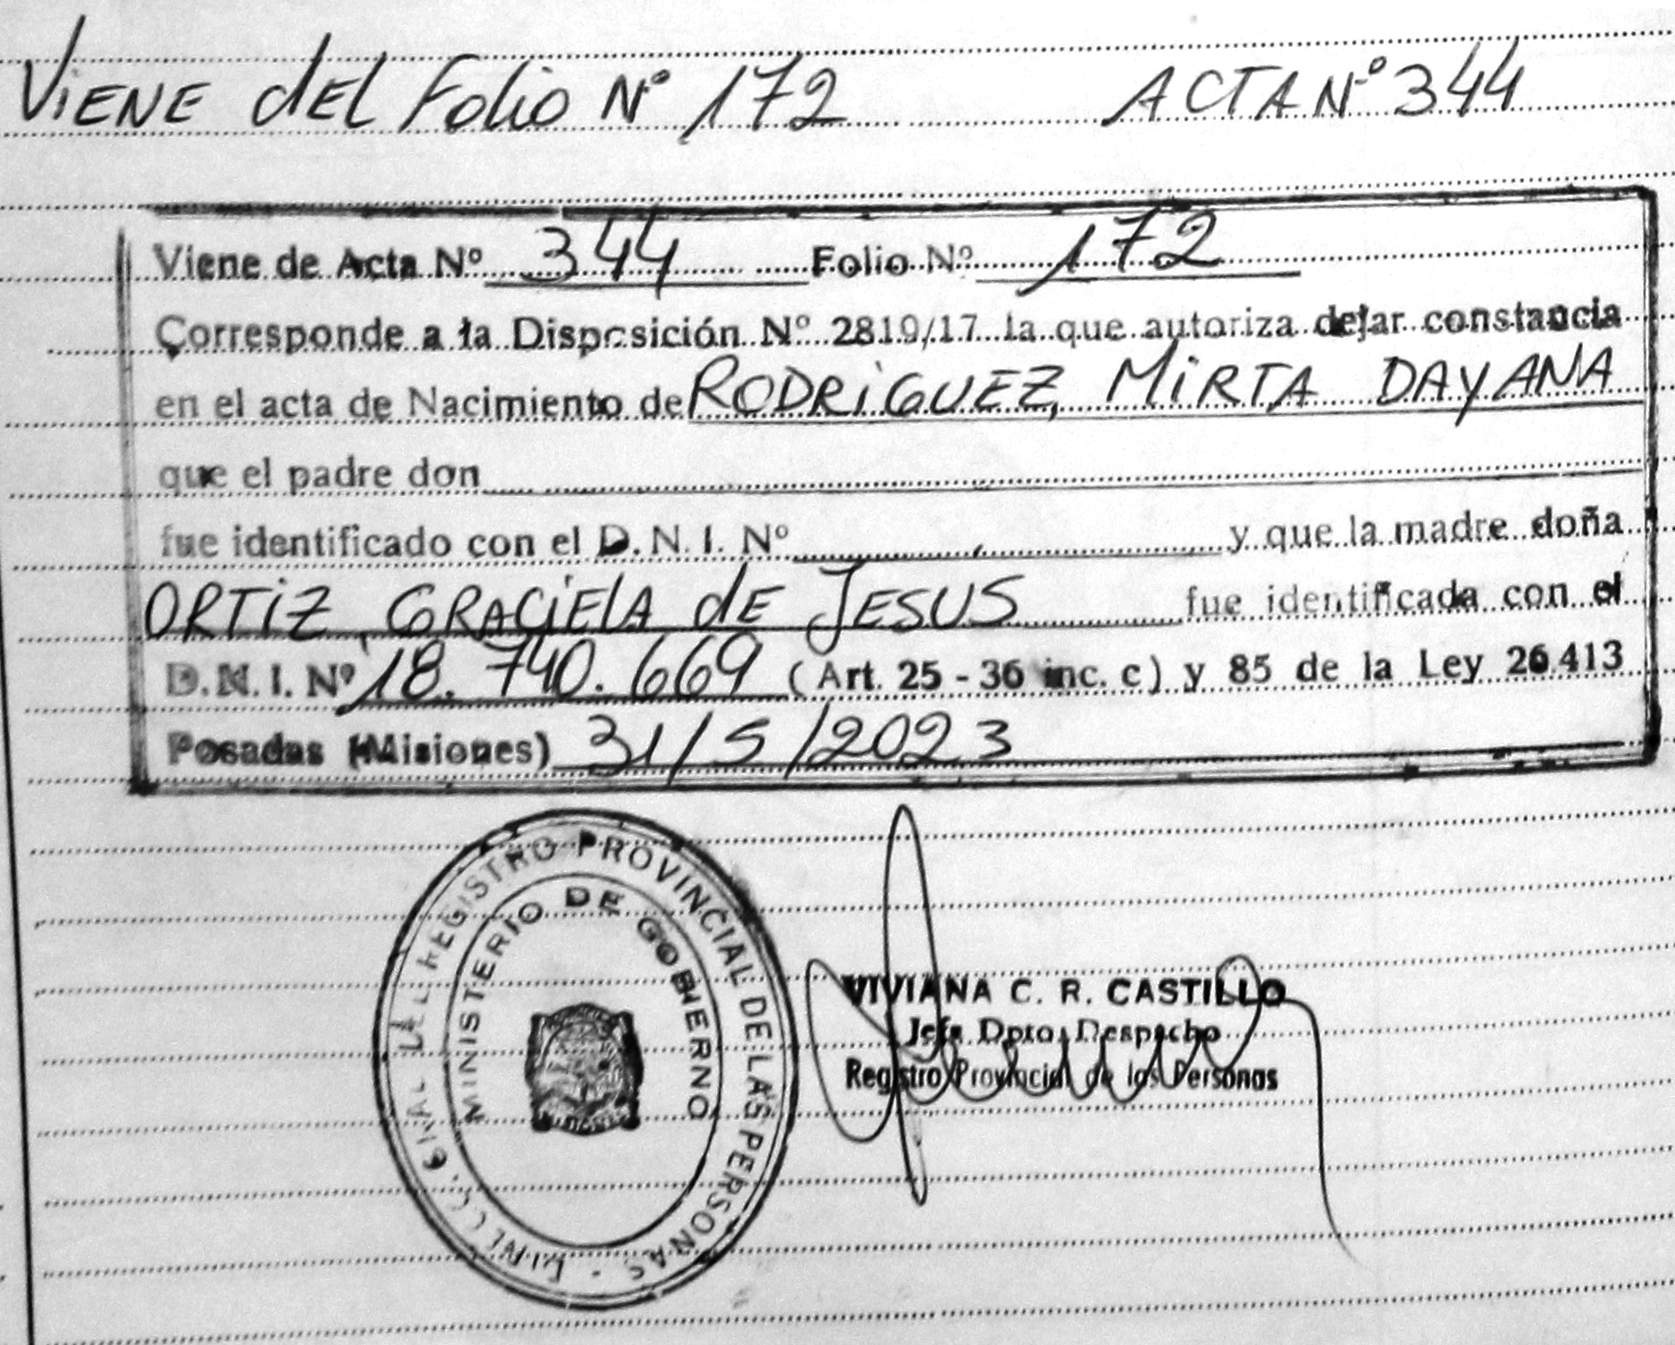 ViENE dEL Folio Nº 172 ACTA Nº 344
Viene de Acta Nº 344 Folio Nº 172
Corresponde a la Disposición Nº 2819/17 la que autoriza dejar constancia
en el acta de Nacimiento de RODRiGUEZ, MiRTA DAYANA
que el padre don
fue identificado con el D. N. I. Nº y que la madre doña
ORTiZ, GRACiElA dE JESUS fue identificada con el
D. N. I. Nº 18.740.669 (Art. 25 - 36 inc. c) y 85 de la Ley 26.413
Posadas (Misiones) 31/5/2023
REGISTRO PROVINCIAL DE LAS PERSONAS
MINISTERIO DE GOBIERNO
VIVIANA C. R. CASTILLO
Jefa Dpto. Despacho
Registro Provincial de las Personas